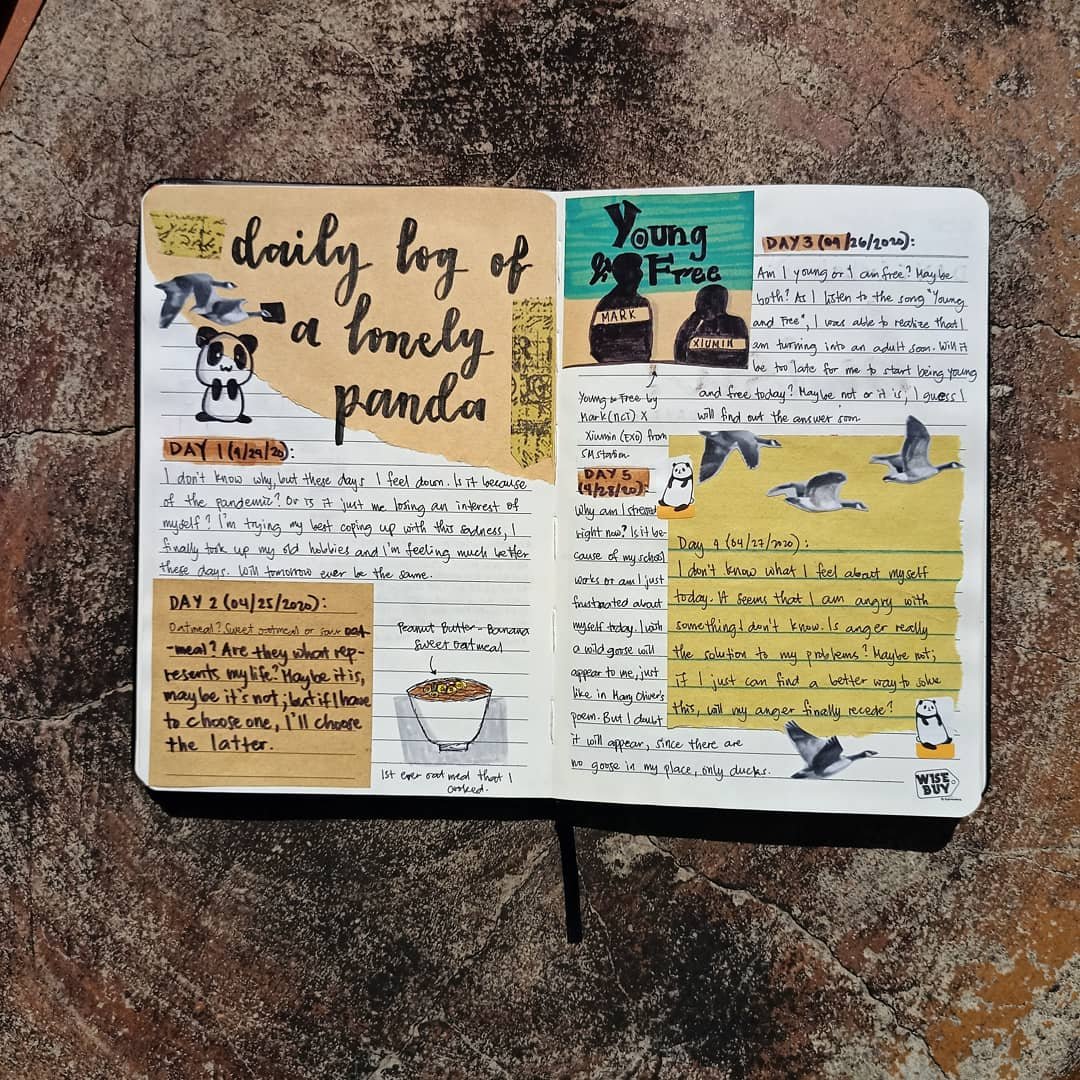 daily log of
a lonely
panda
DAY 1 (4/24/20):
I don't know why, but these days I feel down. Is it because
of the pandemic? Or is it just me losing an interest of
myself? I'm trying my best coping up with this sadness, I
finally took up my old hobbies and I'm feeling much better
these days. Will tomorrow ever be the same.
DAY 2 (04/25/2020):
Oatmeal? Sweet oatmeal or sour oat-
-meal? Are they what rep-
resents my life? Maybe it is,
maybe it's not; but if I have
to choose one, I'll choose
the latter.
Peanut Butter - Banana
Sweet oatmeal
1st ever oatmeal that I
cooked.
Young
& Free
MARK
XIUMIN
Young & Free by
Mark (NCT) X
Xiumin (EXO) from
SM Station
DAY 3 (04/26/2020):
Am I young or I am free? Maybe
both? As I listen to the song "Young
and Free", I was able to realize that I
am turning into an adult soon. Will it
be too late for me to start being young
and free today? Maybe not or it is, I guess I
will find out the answer soon.
Day 4 (04/27/2020):
I don't know what I feel about myself
today. It seems that I am angry with
something I don't know. Is anger really
the solution to my problems? Maybe not;
if I just can find a better way to solve
this, will my anger finally recede?
DAY 5
(4/28/20):
Why am I stressed
right now? Is it be-
cause of my school
works or am I just
frustrated about
myself today. I wish
a wild goose will
appear to me, just
like in Mary Oliver's
poem. But I doubt
it will appear, since there are
no goose in my place, only ducks.
WISE
BUY